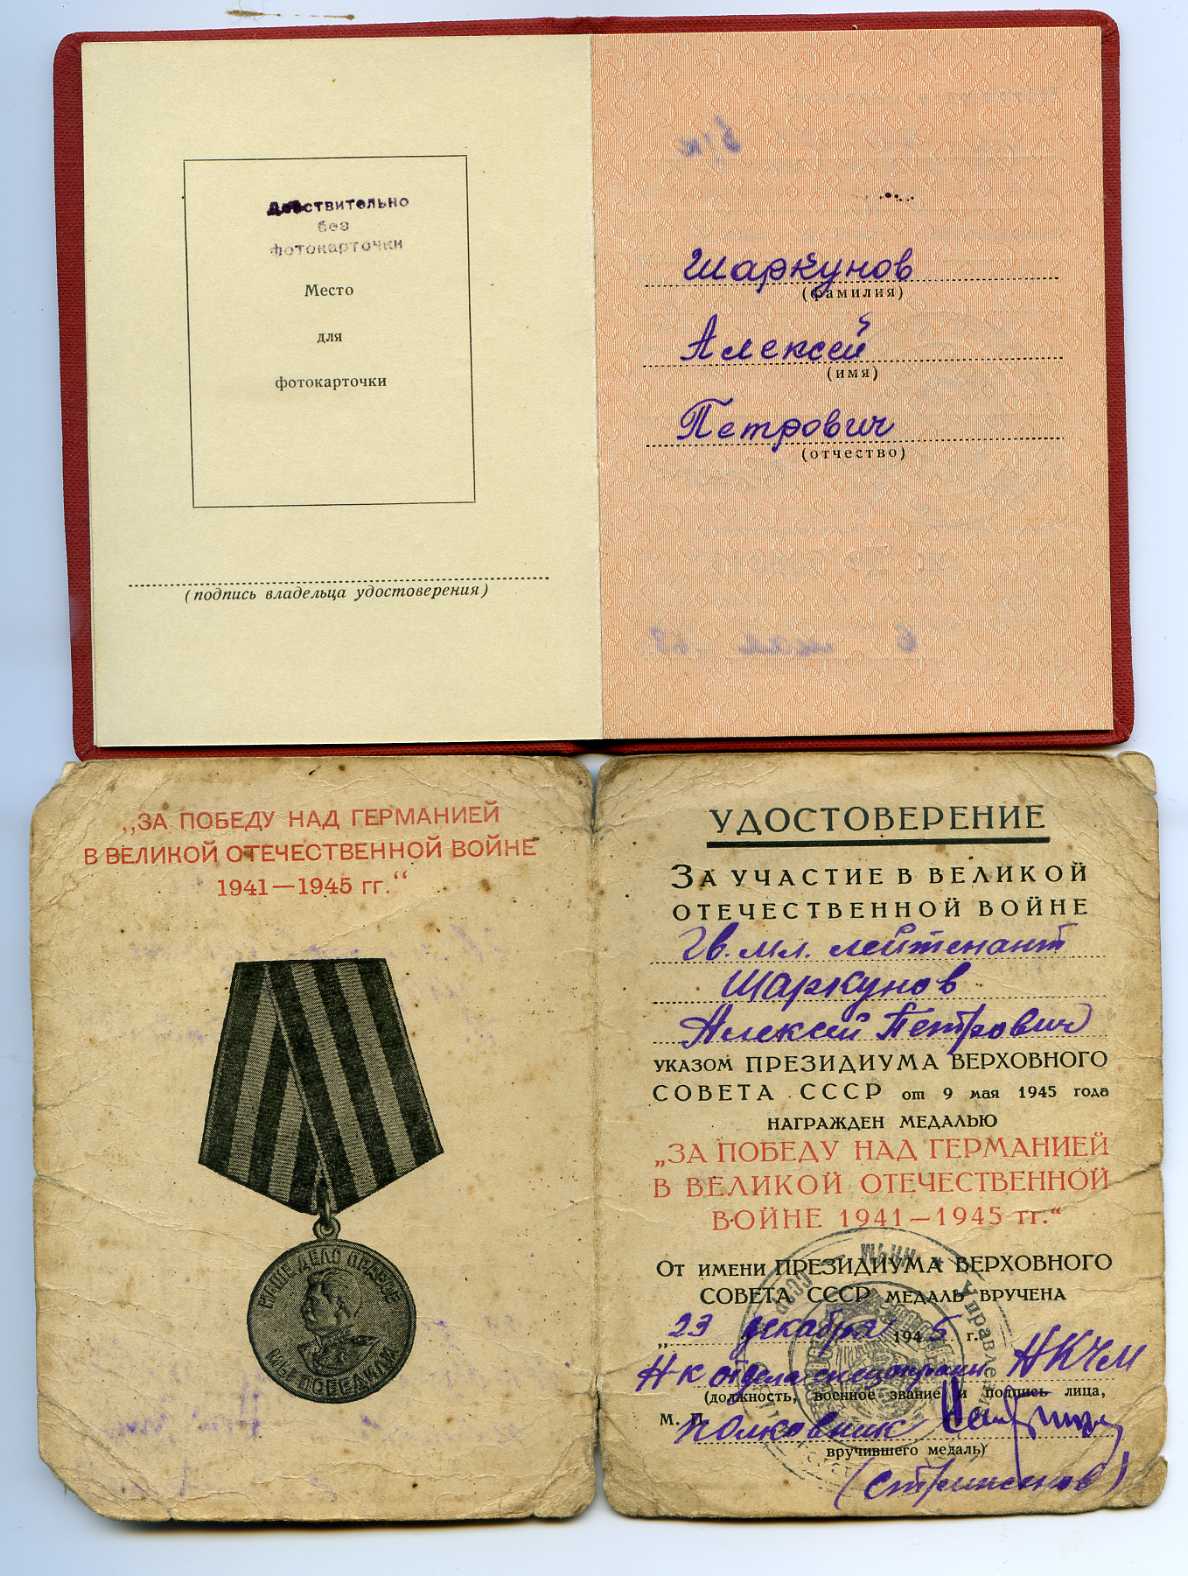 Действительно
без
фотокарточки
Место
для
фотокарточки
(подпись владельца удостоверения)
Шаркунов
(фамилия)
Алексей
(имя)
Петрович
(отчество)
„ЗА ПОБЕДУ НАД ГЕРМАНИЕЙ
В ВЕЛИКОЙ ОТЕЧЕСТВЕННОЙ ВОЙНЕ
1941—1945 гг.“
НАШЕ ДЕЛО ПРАВОЕ
МЫ ПОБЕДИЛИ
УДОСТОВЕРЕНИЕ
ЗА УЧАСТИЕ В ВЕЛИКОЙ
ОТЕЧЕСТВЕННОЙ ВОЙНЕ
Гв. мл. лейтенант
Шаркунов
Алексей Петрович
УКАЗОМ ПРЕЗИДИУМА ВЕРХОВНОГО
СОВЕТА СССР от 9 мая 1945 года
НАГРАЖДЕН МЕДАЛЬЮ
„ЗА ПОБЕДУ НАД ГЕРМАНИЕЙ
В ВЕЛИКОЙ ОТЕЧЕСТВЕННОЙ
ВОЙНЕ 1941—1945 гг.“
ОТ ИМЕНИ ПРЕЗИДИУМА ВЕРХОВНОГО
СОВЕТА СССР МЕДАЛЬ ВРУЧЕНА
„23 декабря 1945 г.
Н-к отдела НКЧМ
(должность, военное звание и подпись лица,
М. П. полковник
вручившего медаль)